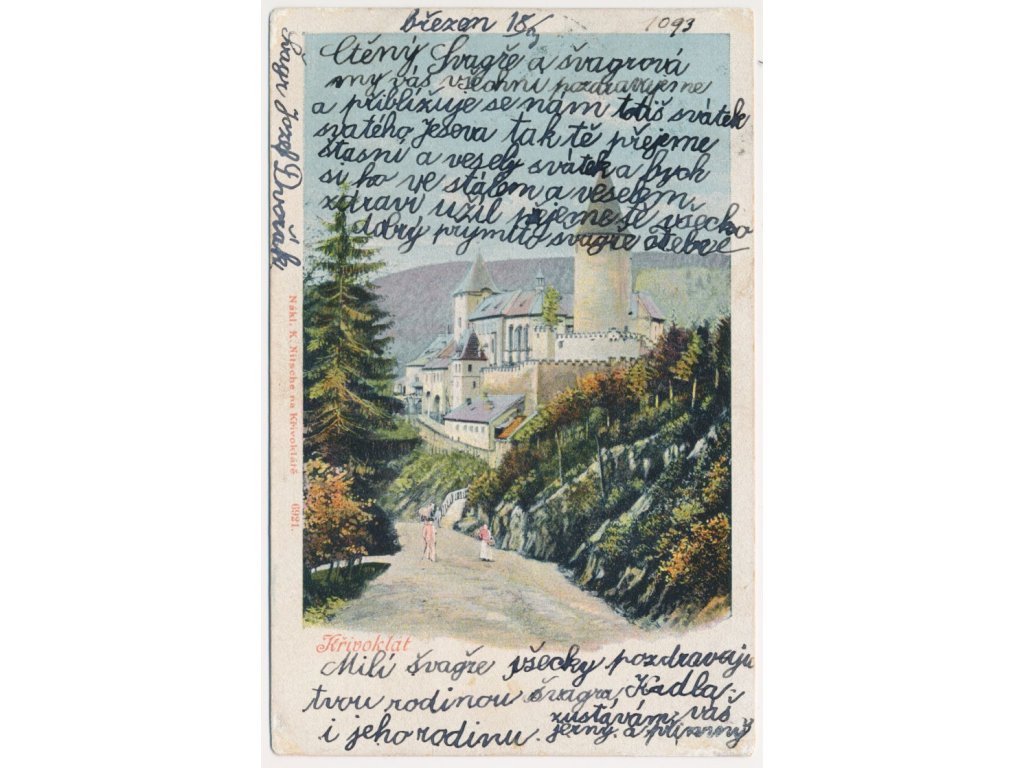 březen 18/
1093
Ctěný Svagře a švagrová
my váš všechni pozdravujeme
a přibližuje se nám totiš svátek
svatého Jeseva tak tě přejeme
štasní a vesely svátek a bych
si ho ve stálem a veselem
zdravi užil přejeme tě všecko
dobrý přijmito svagře otebvě
Švagr Jozef Dvořak
Nákl. K. Nitsche na Křivoklátě 6921.
Křivoklát
Milí švagře všecky pozdravuju
tvou rodinou švagra Kadla
i jeho rodinu. zustávám váš
jerný a přijmný